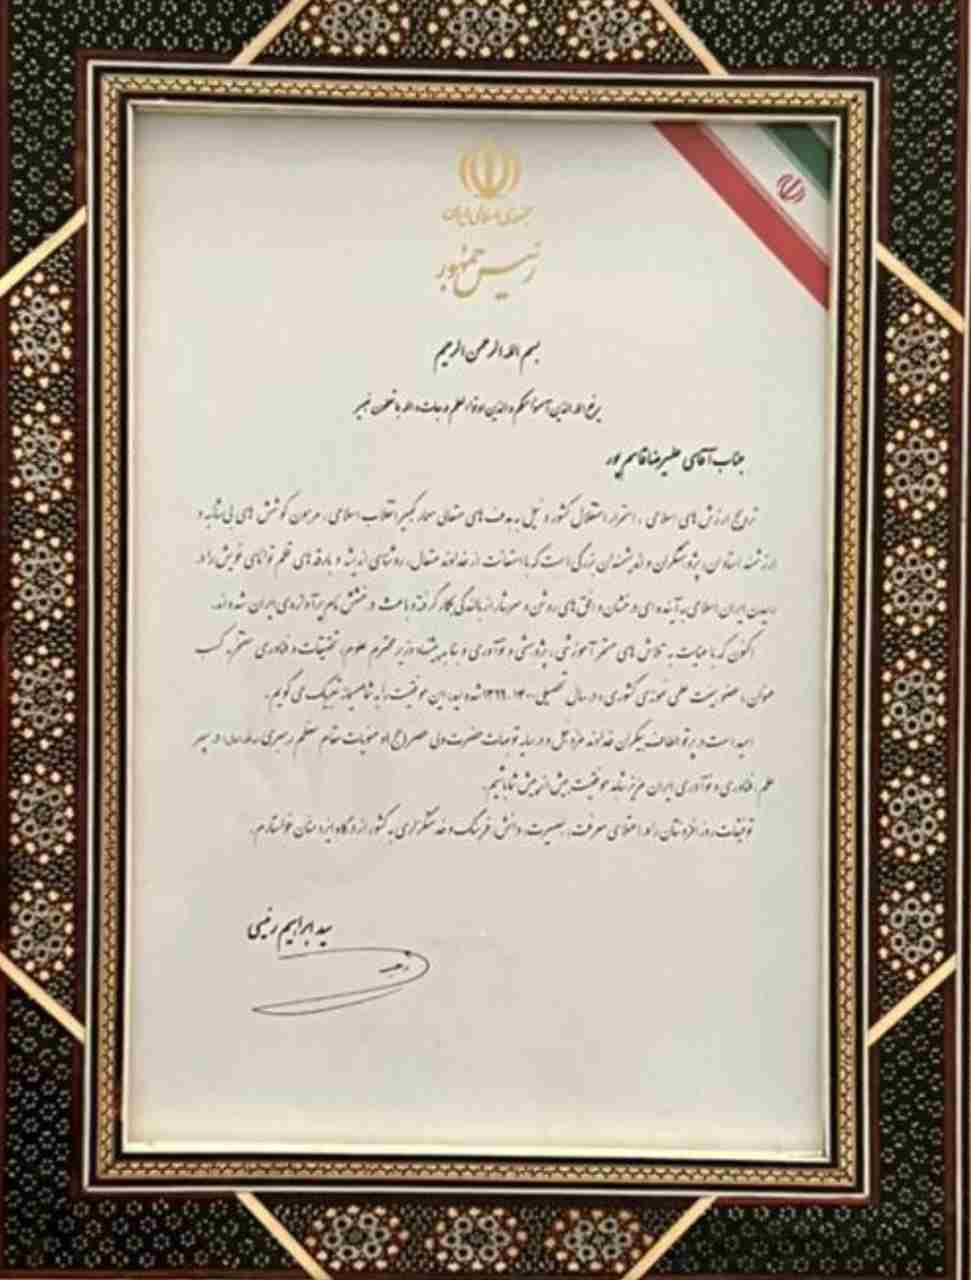 جمهوری اسلامی ایران
رئیس جمهور
بسم الله الرحمن الرحیم
یرفع الله الذین آمنوا منکم و الذین اوتوا العلم درجات و الله بما تعملون خبیر
جناب آقای علیرضا قاسم پور
ترویج ارزش های اسلامی، استمرار استقلال کشور و نیل به هدف های متعالی معمار کبیر انقلاب اسلامی، مرهون کوشش های بی شائبه و
ارزشمند استادان، پژوهشگران و اندیشمندان بزرگی است که با استعانت از خداوند متعال، روشنای اندیشه و بارقه های قلم توانای خویش را در
رسیدن ایران اسلامی به آینده ای درخشان و افق های روشن و سرشار از بالندگی بکار گرفته و باعث درخشش نام پرآوازه ی ایران شده اند.
اکنون که با عنایت به تلاش های مستمر آموزشی، پژوهشی و نوآوری و بنا به پیشنهاد وزیر محترم علوم، تحقیقات و فناوری مفتخر به کسب
عنوان عضو هیئت علمی نمونه ی کشوری در سال تحصیلی ۱۴۰۰-۱۳۹۹ شده اید، این موفقیت را به شما صمیمانه تبریک می گویم.
امید است در پرتو الطاف بیکران خداوند عزوجل و در سایه توجهات حضرت ولی عصر (عج) و منویات مقام معظم رهبری در سپهر
علم، فناوری و نوآوری ایران عزیز شاهد موفقیت بیش از پیش شما باشیم.
توفیقات روز افزونتان را در اعتلای معرفت، بصیرت، دانش، فرهنگ و خدمتگزاری به کشور از درگاه ایزد منان خواستارم.
سید ابراهیم رئیسی